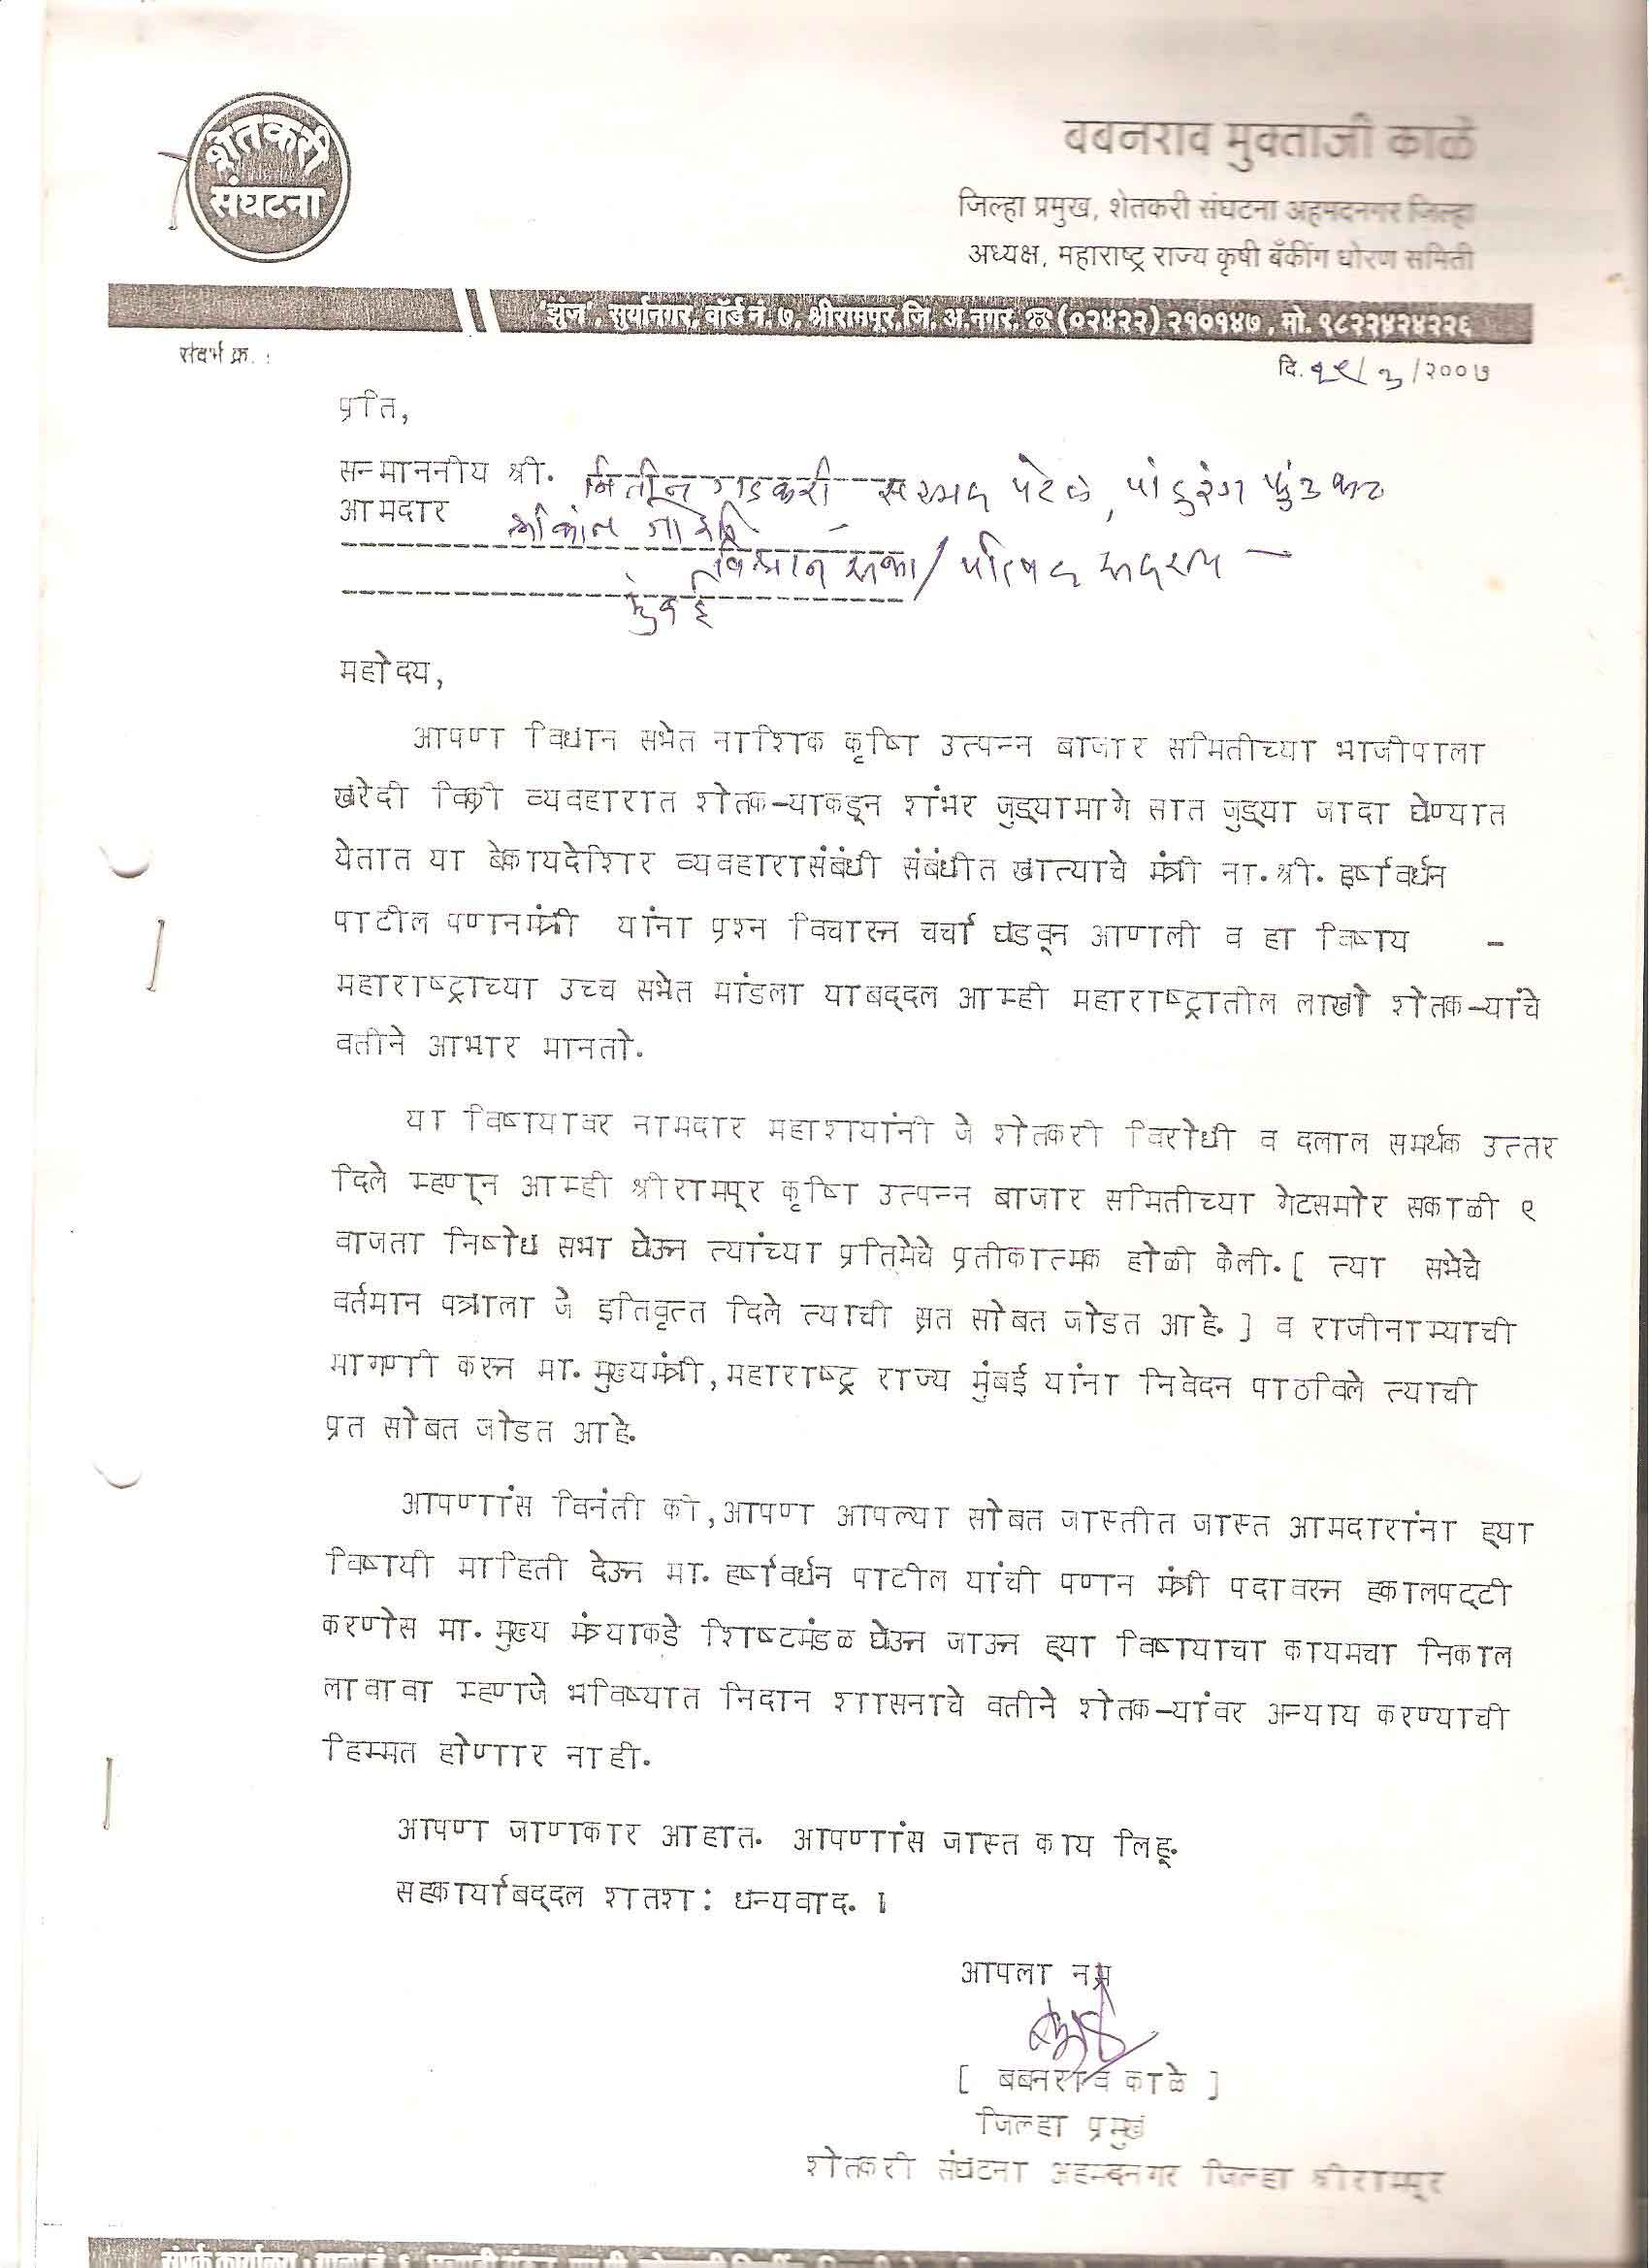 शेतकरी
संघटना
बबनराव मुक्ताजी काळे
जिल्हा प्रमुख, शेतकरी संघटना अहमदनगर जिल्हा
अध्यक्ष, महाराष्ट्र राज्य कृषी बँकींग धोरण समिती
'झुंज', सुर्यानगर, वॉर्ड नं. ७, श्रीरामपूर, जि. अ.नगर. ☎ (०२४२२) २१०१४७, मो. ९८२२४२४२२६
संदर्भ क्र. :
दि. १९/३/२००७
प्रति,
सन्माननीय श्री. नितीन गडकरी, पटेल, पांडुरंग फुंडकर
आमदार श्रीकांत जोशी
विधान सभा/परिषद सदस्य —
मुंबई
महोदय,
आपण विधान सभेत नाशिक कृषि उत्पन्न बाजार समितीच्या भाजीपाला
खरेदी विक्री व्यवहारात शेतक-याकडून शंभर जुड्यामागे सात जुड्या जादा घेण्यात
येतात या बेकायदेशिर व्यवहारासंबंधी संबंधीत खात्याचे मंत्री ना. श्री. हर्षवर्धन
पाटील पणनमंत्री यांना प्रश्न विचारुन चर्चा घडवून आणली व हा विषय -
महाराष्ट्राच्या उच्च सभेत मांडला याबद्दल आम्ही महाराष्ट्रातील लाखो शेतक-यांचे
वतीने आभार मानतो.
या विषयावर नामदार महाशयांनी जे शेतकरी विरोधी व दलाल समर्थक उत्तर
दिले म्हणून आम्ही श्रीरामपूर कृषि उत्पन्न बाजार समितीच्या गेटसमोर सकाळी ९
वाजता निषेध सभा घेऊन त्यांच्या प्रतिमेचे प्रतीकात्मक होळी केली. [ त्या सभेचे
वर्तमान पत्राला जे इतिवृत्त दिले त्याची प्रत सोबत जोडत आहे. ] व राजीनाम्याची
मागणी करुन मा. मुख्यमंत्री, महाराष्ट्र राज्य मुंबई यांना निवेदन पाठविले त्याची
प्रत सोबत जोडत आहे.
आपणांस विनंती की, आपण आपल्या सोबत जास्तीत जास्त आमदारांना ह्या
विषयी माहिती देऊन मा. हर्षवर्धन पाटील यांची पणन मंत्री पदावरुन हकालपट्टी
करणेस मा. मुख्य मंत्र्याकडे शिष्टमंडळ घेऊन जाऊन ह्या विषयाचा कायमचा निकाल
लावावा म्हणजे भविष्यात निदान शासनाचे वतीने शेतक-यांवर अन्याय करण्याची
हिम्मत होणार नाही.
आपण जाणकार आहात. आपणांस जास्त काय लिहू.
सहकार्याबद्दल शतश: धन्यवाद. ।
आपला नम्र
[ बबनराव काळे ]
जिल्हा प्रमुख
शेतकरी संघटना अहमदनगर जिल्हा श्रीरामपूर